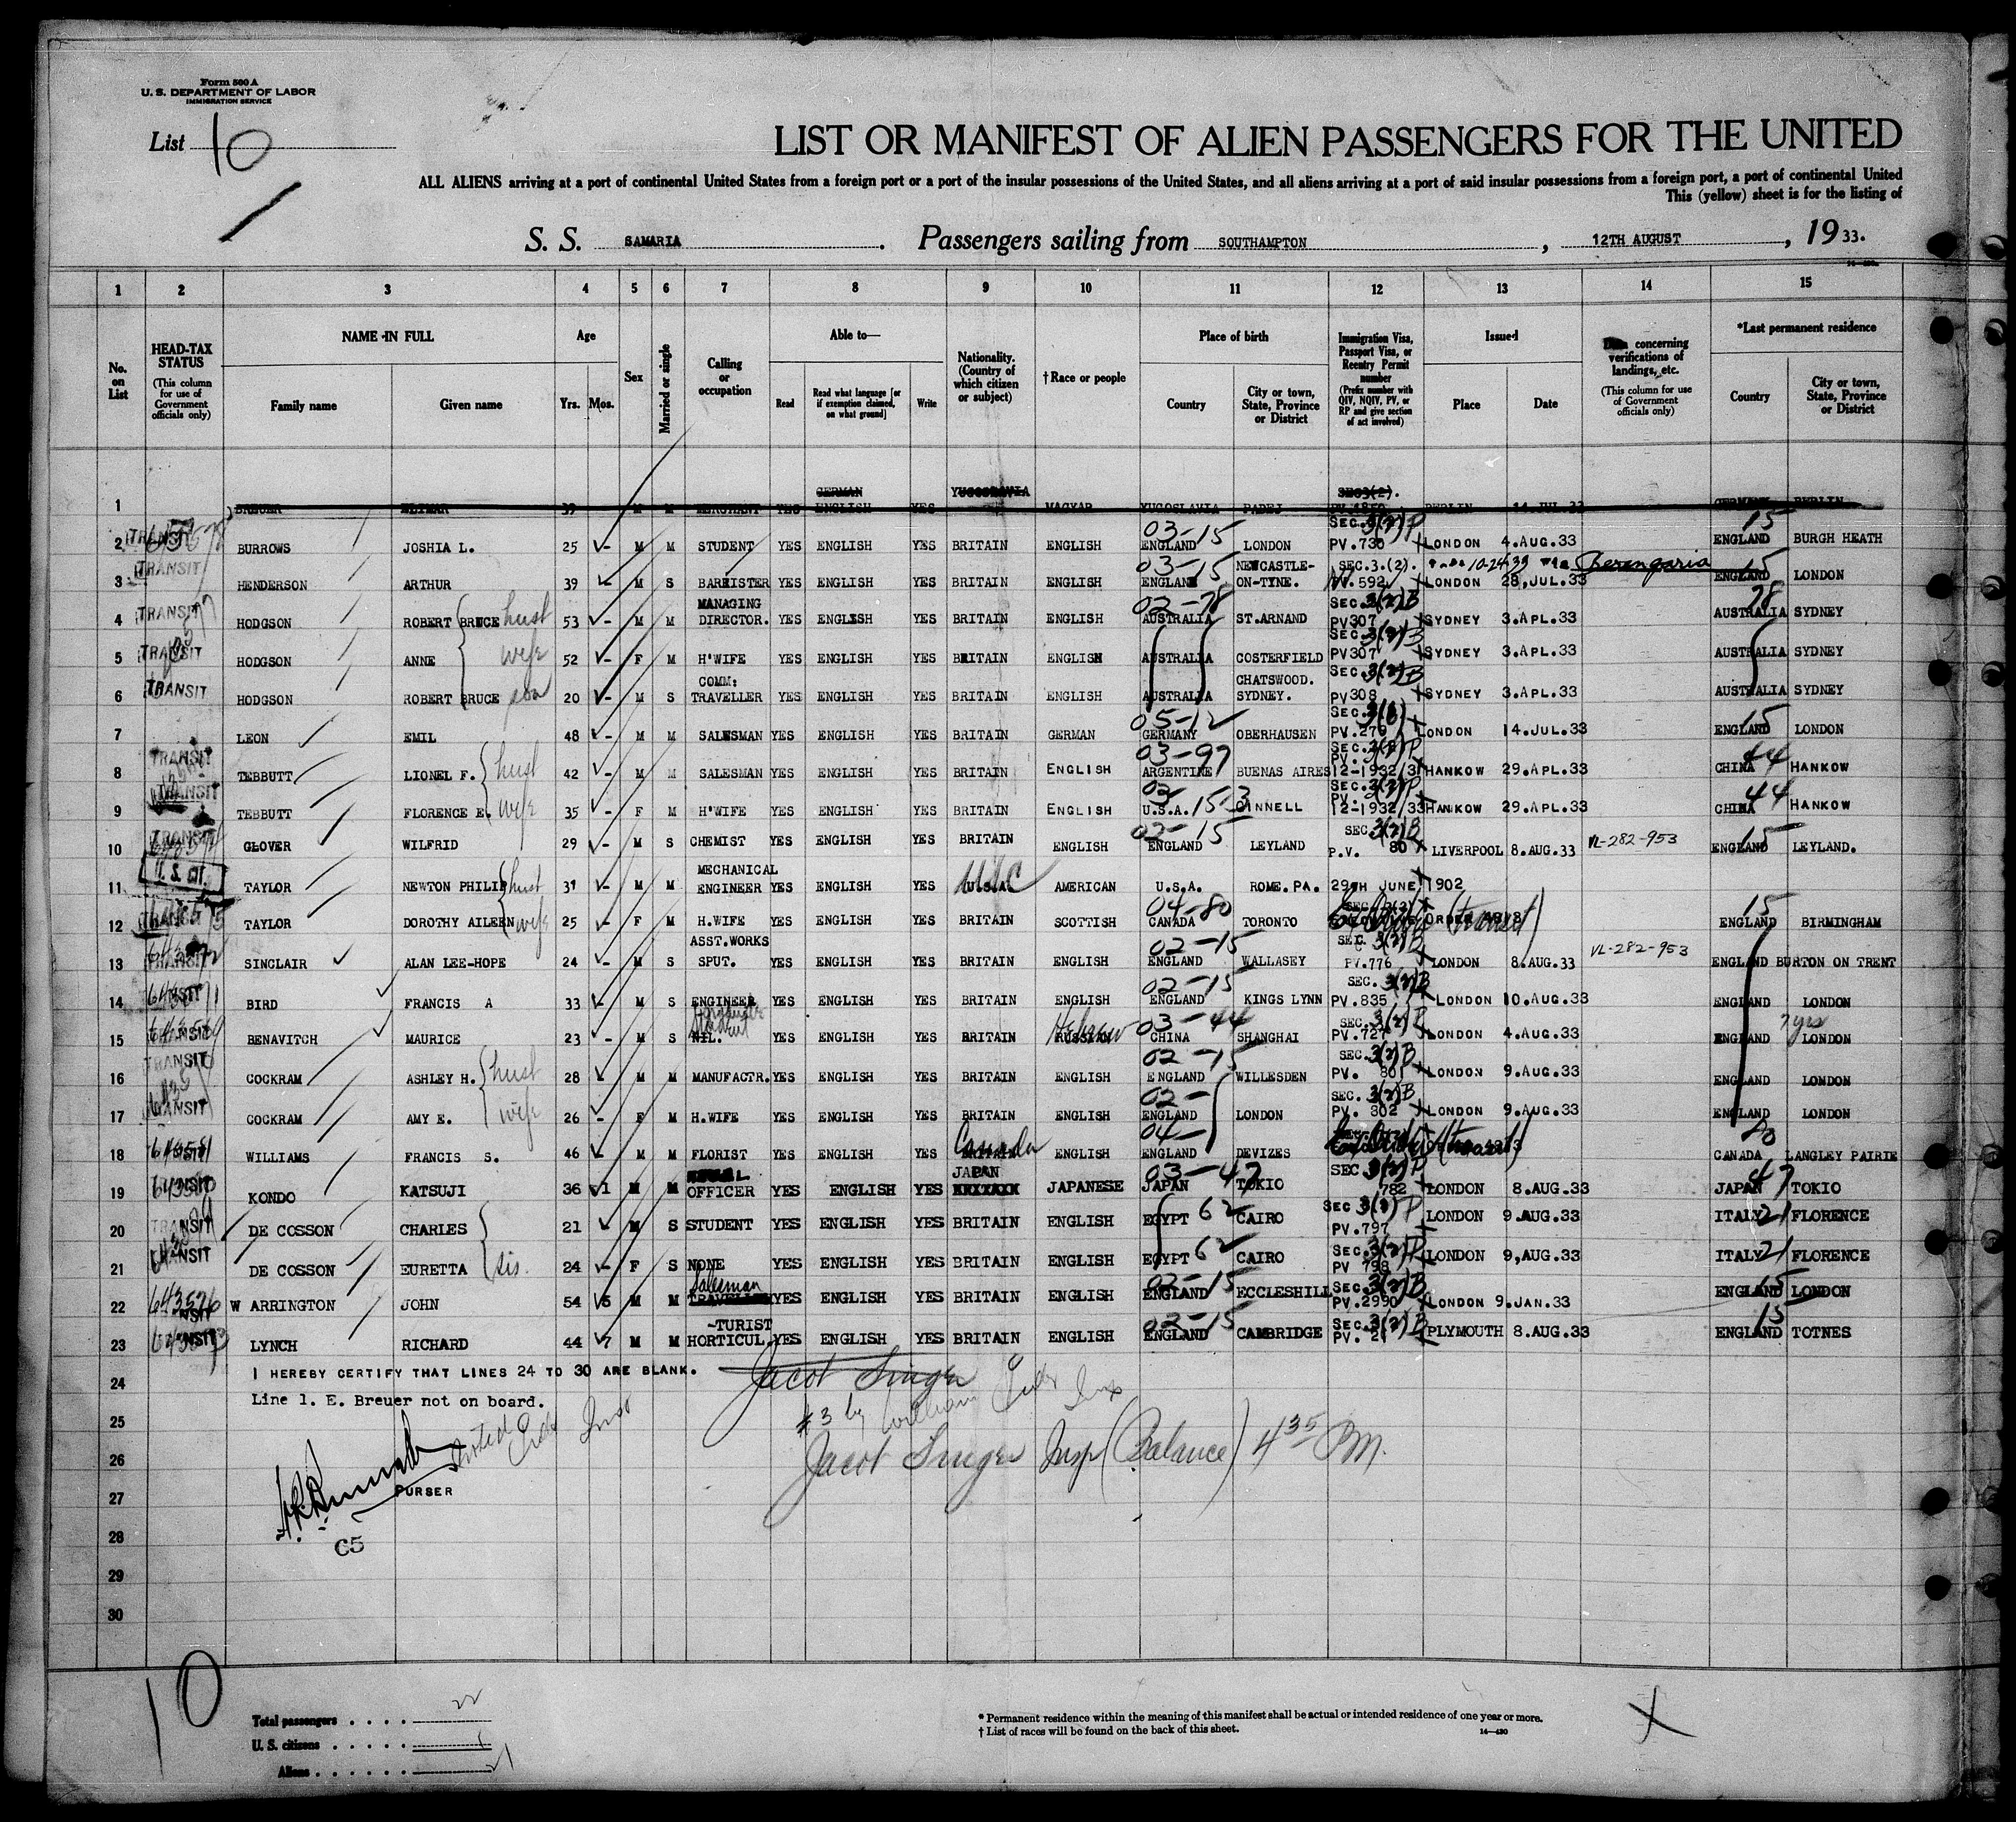 Form 500 A
U. S. DEPARTMENT OF LABOR
IMMIGRATION SERVICE
List 10
LIST OR MANIFEST OF ALIEN PASSENGERS FOR THE UNITED
ALL ALIENS arriving at a port of continental United States from a foreign port or a port of the insular possessions of the United States, and all aliens arriving at a port of said insular possessions from a foreign port, a port of continental United
This (yellow) sheet is for the listing of
S. S. SAMARIA. Passengers sailing from SOUTHAMPTON, 12TH AUGUST, 19 33.
1 2 3 4 5 6 7 8 9 10 11 12 13 14 15
No. on List
HEAD-TAX STATUS (This column for use of Government officials only)
NAME IN FULL Family name Given name
Age Yrs. Mos.
Sex
Married or single
Calling or occupation
Able to— Read Read what language [or if exemption claimed, on what ground] Write
Nationality. (Country of which citizen or subject)
†Race or people
Place of birth Country City or town, State, Province or District
Immigration Visa, Passport Visa, or Reentry Permit number (Prefix number with QIV, NQIV, PV, or RP and give section of act involved)
Issued Place Date
concerning verifications of landings, etc. (This column for use of Government officials only)
*Last permanent residence Country City or town, State, Province or District
1 BREUER 39 M M MERCHANT YES GERMAN ENGLISH YES YUGOSLAVIA MAGYAR YUGOSLAVIA PADEJ SEC 3(2). BERLIN 14 JUL 33 GERMANY BERLIN
2 TRANSIT BURROWS JOSHIA L. 25 - M M STUDENT YES ENGLISH YES BRITAIN ENGLISH 03-15 ENGLAND LONDON SEC. 3(2) P PV.730 LONDON 4.AUG.33 15 ENGLAND BURGH HEATH
3 TRANSIT HENDERSON ARTHUR 39 - M S BARRISTER YES ENGLISH YES BRITAIN ENGLISH 03-15 ENGLAND NEWCASTLE-ON-TYNE. SEC.3.(2). PV.592 LONDON 28.JUL.33 10-24-33 Berengaria 15 ENGLAND LONDON
4 TRANSIT HODGSON ROBERT BRUCE hust 53 - M M MANAGING DIRECTOR. YES ENGLISH YES BRITAIN ENGLISH 02-78 AUSTRALIA ST.ARNAND SEC. 3(2) B PV307 SYDNEY 3.APL.33 78 AUSTRALIA SYDNEY
5 TRANSIT HODGSON ANNE wife 52 - F M H'WIFE YES ENGLISH YES BRITAIN ENGLISH AUSTRALIA COSTERFIELD SEC. 3(2) B PV307 SYDNEY 3.APL.33 AUSTRALIA SYDNEY
6 TRANSIT HODGSON ROBERT BRUCE son 20 - M S COMM: TRAVELLER YES ENGLISH YES BRITAIN ENGLISH AUSTRALIA CHATSWOOD. SYDNEY. SEC. 3(2) B PV308 SYDNEY 3.APL.33 AUSTRALIA SYDNEY
7 LEON EMIL 48 - M M SALESMAN YES ENGLISH YES BRITAIN GERMAN 05-12 GERMANY OBERHAUSEN SEC. 3(6) PV.279 LONDON 14.JUL.33 15 ENGLAND LONDON
8 TRANSIT TEBBUTT LIONEL F. hust 42 - M M SALESMAN YES ENGLISH YES BRITAIN ENGLISH 03-97 ARGENTINE BUENOS AIRES SEC. 3(2) P PV. 12-1932/3 HANKOW 29.APL.33 44 CHINA HANKOW
9 TRANSIT TEBBUTT FLORENCE E. wife 35 - F M H'WIFE YES ENGLISH YES BRITAIN ENGLISH 03 U.S.A. 15-3 GINNELL SEC. 3(2) P PV. 12-1932/33 HANKOW 29.APL.33 44 CHINA HANKOW
10 TRANSIT GLOVER WILFRID 29 - M S CHEMIST YES ENGLISH YES BRITAIN ENGLISH 02-15 ENGLAND LEYLAND SEC 3(2) B P.V. 80 LIVERPOOL 8.AUG.33 VL-282-953 15 ENGLAND LEYLAND.
11 U. S. CIT. TAYLOR NEWTON PHILIP hust 31 - M M MECHANICAL ENGINEER YES ENGLISH YES U.S.A. USC AMERICAN U.S.A. ROME. PA. 29TH JUNE 1902
12 TRANSIT TAYLOR DOROTHY AILEEN wife 25 - F M H.WIFE YES ENGLISH YES BRITAIN SCOTTISH 04-80 CANADA TORONTO (transit) 15 ENGLAND BIRMINGHAM
13 TRANSIT SINCLAIR ALAN LEE-HOPE 24 - M S ASST.WORKS SPUT. YES ENGLISH YES BRITAIN ENGLISH 02-15 ENGLAND WALLASEY SEC. 3(2) B PV.776 LONDON 8.AUG.33 VL-282-953 ENGLAND BURTON ON TRENT
14 BIRD FRANCIS A 33 - M S ENGINEER YES ENGLISH YES BRITAIN ENGLISH 02-15 ENGLAND KINGS LYNN SEC. 3(2) B PV.835 LONDON 10.AUG.33 ENGLAND LONDON
15 TRANSIT BENAVITCH MAURICE 23 - M S NIL. Student YES ENGLISH YES BRITAIN RUSSIAN Hebrew 03-44 CHINA SHANGHAI SEC. 3(2) P PV.727 LONDON 4.AUG.33 7 yrs ENGLAND LONDON
16 TRANSIT COCKRAM ASHLEY H. hust 28 - M M MANUFACTR. YES ENGLISH YES BRITAIN ENGLISH 02-15 ENGLAND WILLESDEN SEC. 3(2) B PV. 801 LONDON 9.AUG.33 ENGLAND LONDON
17 TRANSIT COCKRAM AMY E. wife 26 - F M H.WIFE YES ENGLISH YES BRITAIN ENGLISH 02- ENGLAND LONDON SEC. 3(2) B PV. 802 LONDON 9.AUG.33 ENGLAND LONDON
18 WILLIAMS FRANCIS S. 46 - M M FLORIST YES ENGLISH YES Canada ENGLISH 04- ENGLAND DEVIZES 80 CANADA LANGLEY PAIRIE
19 KONDO KATSUJI 36 1 M M OFFICER YES ENGLISH YES JAPAN JAPANESE 03-47 JAPAN TOKIO SEC 3(2) P 782 LONDON 8.AUG.33 47 JAPAN TOKIO
20 TRANSIT DE COSSON CHARLES 21 - M S STUDENT YES ENGLISH YES BRITAIN ENGLISH EGYPT 62 CAIRO SEC 3(2) P PV.797 LONDON 9.AUG.33 ITALY 21 FLORENCE
21 TRANSIT DE COSSON EURETTA sis. 24 - F S NONE YES ENGLISH YES BRITAIN ENGLISH EGYPT 62 CAIRO SEC. 3(2) P PV 798 LONDON 9,AUG.33 ITALY 21 FLORENCE
22 643526 W ARRINGTON JOHN 54 5 M M Salesman TRAVELLER YES ENGLISH YES BRITAIN ENGLISH 02-15 ENGLAND ECCLESHILL SEC. 3(2) B PV.2990 LONDON 9.JAN.33 15 ENGLAND LONDON
23 LYNCH RICHARD 44 7 M M -TURIST HORTICUL. YES ENGLISH YES BRITAIN ENGLISH 02-15 ENGLAND CAMBRIDGE SEC. 3(2) B PV. 21 PLYMOUTH 8.AUG.33 15 ENGLAND TOTNES
24 I HEREBY CERTIFY THAT LINES 24 TO 30 ARE BLANK. Jacob Singer
Line 1. E. Breuer not on board.
25 #3 by William Insp
26 Jacob Singer Insp (Balance) 4 35 PM.
27 PURSER
28 C5
29
30
10
Total passengers . . . . 22
U. S. citizens . . . . 1
Aliens . . . . . . 21
* Permanent residence within the meaning of this manifest shall be actual or intended residence of one year or more.
† List of races will be found on the back of this sheet. 14—430